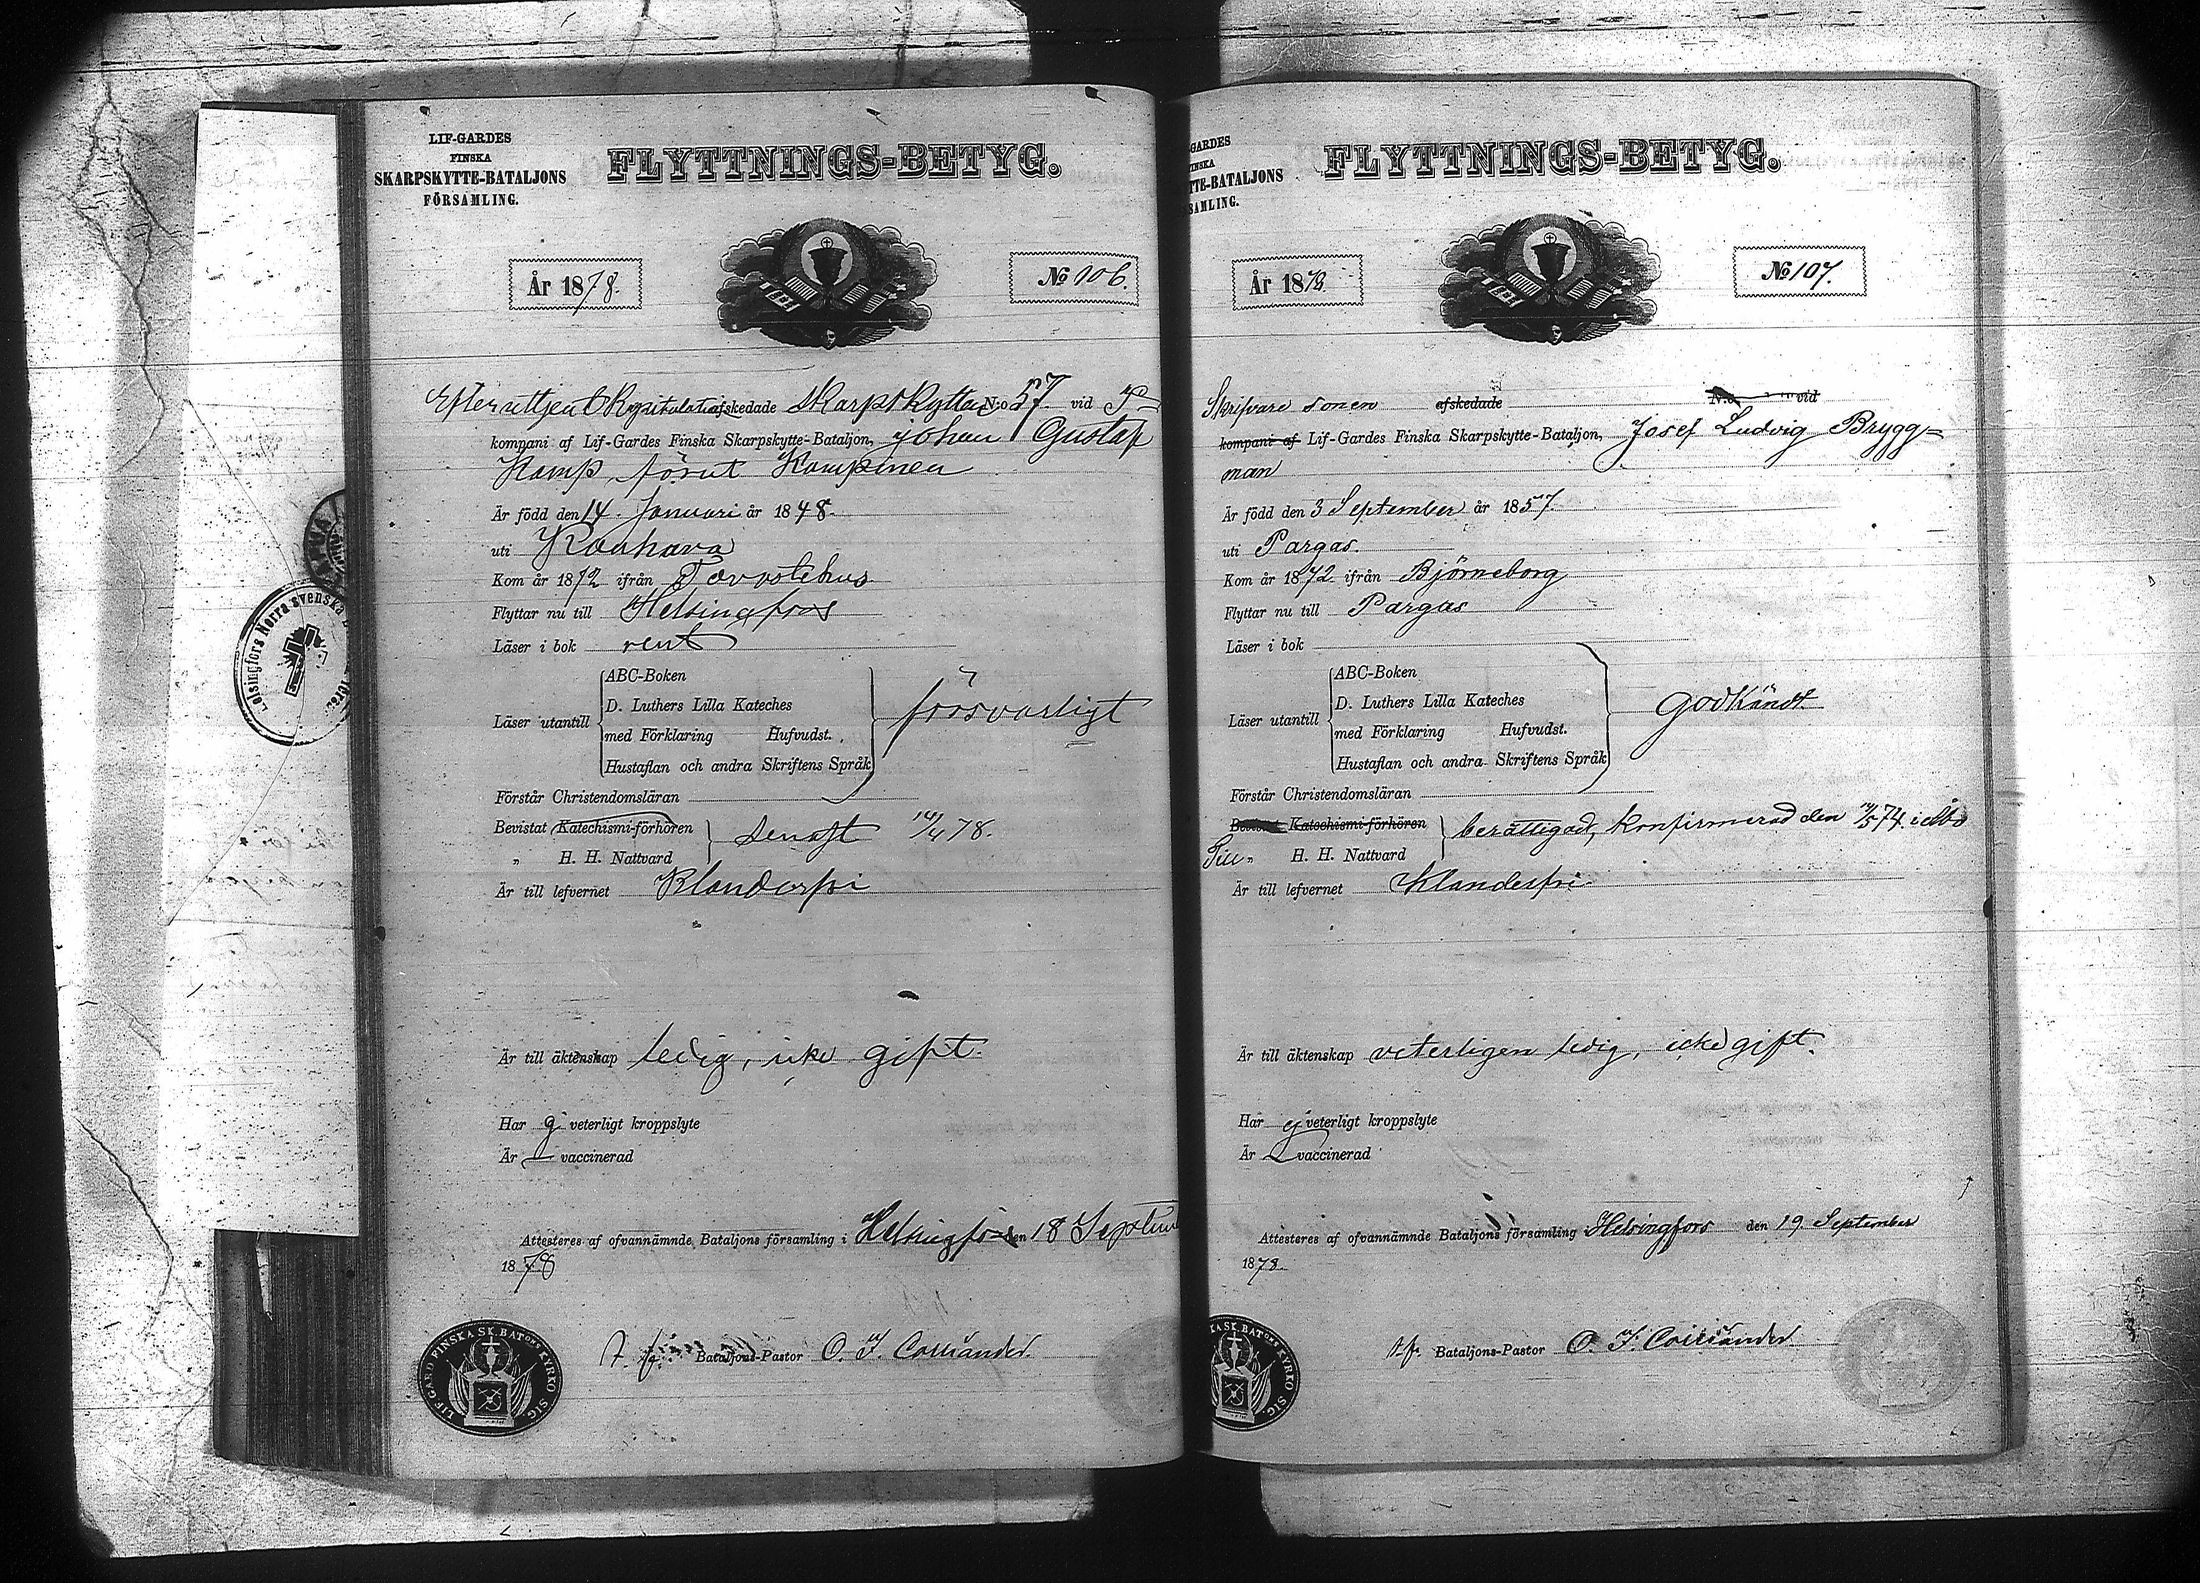 LIF-GARDES
FINSKA
SKARPSKYTTE-BATALJONS
FÖRSAMLING.
FLYTTNINGS-BETYG.
År 1878.
No 106.
Efter uttjent Kapitulation afskedade Skarpskytten N:o 57 vid
kompani af Lif-Gardes Finska Skarpskytte-Bataljon, Johan Gustaf
Kamp, förut Kampinen
Är född den 14 Januari år 1848.
uti Kauhava
Kom år 1872 ifrån Tavastehus
Flyttar nu till Helsingfors
Läser i bok rent
Läser utantill
ABC-Boken
D. Luthers Lilla Kateches
med Förklaring Hufvudst.
Hustaflan och andra Skriftens Språk
försvarligt
Förstår Christendomsläran
Bevistat Katechismi-förhören
" H. H. Nattvard
senast 14/4 78.
Är till lefvernet Klanderfri
Är till äktenskap ledig, icke gift.
Har ej veterligt kroppslyte
Är vaccinerad
Attesteres af ofvannämnde Bataljons församling i Helsingfors den 18 Septem
1878
t. f. Bataljons-Pastor O. F. Corsiander.
LIF GARD FINSKA SK. BATONS KYRKO SIG.
Helsingfors Norra svenska
GARDES
INSKA
TTE-BATALJONS
SAMLING.
FLYTTNINGS-BETYG.
År 1878
No 107.
Skrifvare sonen afskedade N:o vid
kompani af Lif-Gardes Finska Skarpskytte-Bataljon, Josef Ludvig Brygg=
man
Är född den 3 September år 1857.
uti Pargas.
Kom år 1872 ifrån Björneborg
Flyttar nu till Pargas
Läser i bok
Läser utantill
ABC-Boken
D. Luthers Lilla Kateches
med Förklaring Hufvudst.
Hustaflan och andra Skriftens Språk
Godkändt
Förstår Christendomsläran
Bevistat Katechismi-förhören
Till " H. H. Nattvard
berättigad, konfirmerad den 14/5 74. i Åbo
Är till lefvernet Klanderfri
Är till äktenskap veterligen ledig, icke gift.
Har ej veterligt kroppslyte
Är vaccinerad
Attesteres af ofvannämnde Bataljons församling i Helsingfors den 19. September
1878.
t.f. Bataljons-Pastor O. F. Corsiander
KA SK. BATONS KYRKO SIG.